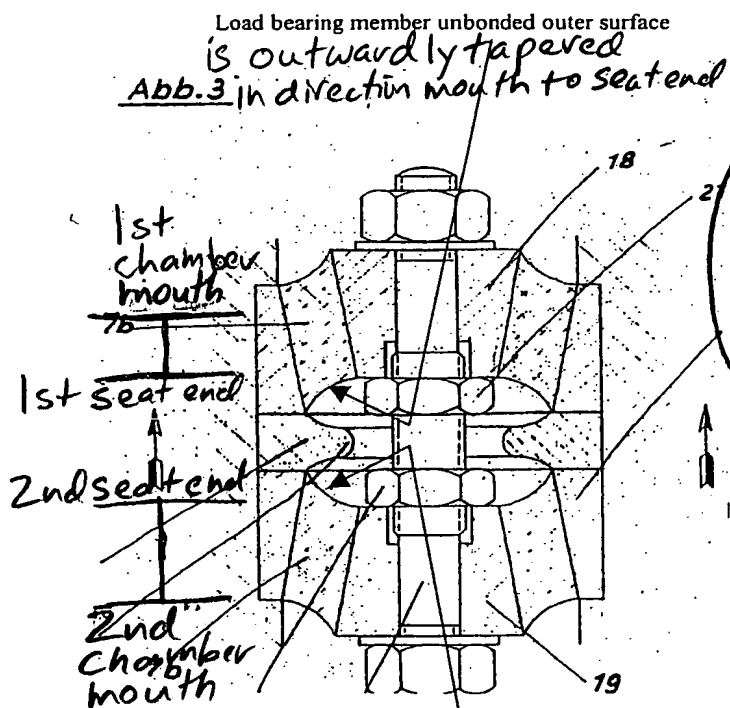 Load bearing member unbonded outer surface
is outwardly tapered
Abb.3 in direction mouth to seat end
18
21
1st
chamber
mouth
7b
1st seat end
2nd seat end
2nd
chamber
mouth
19